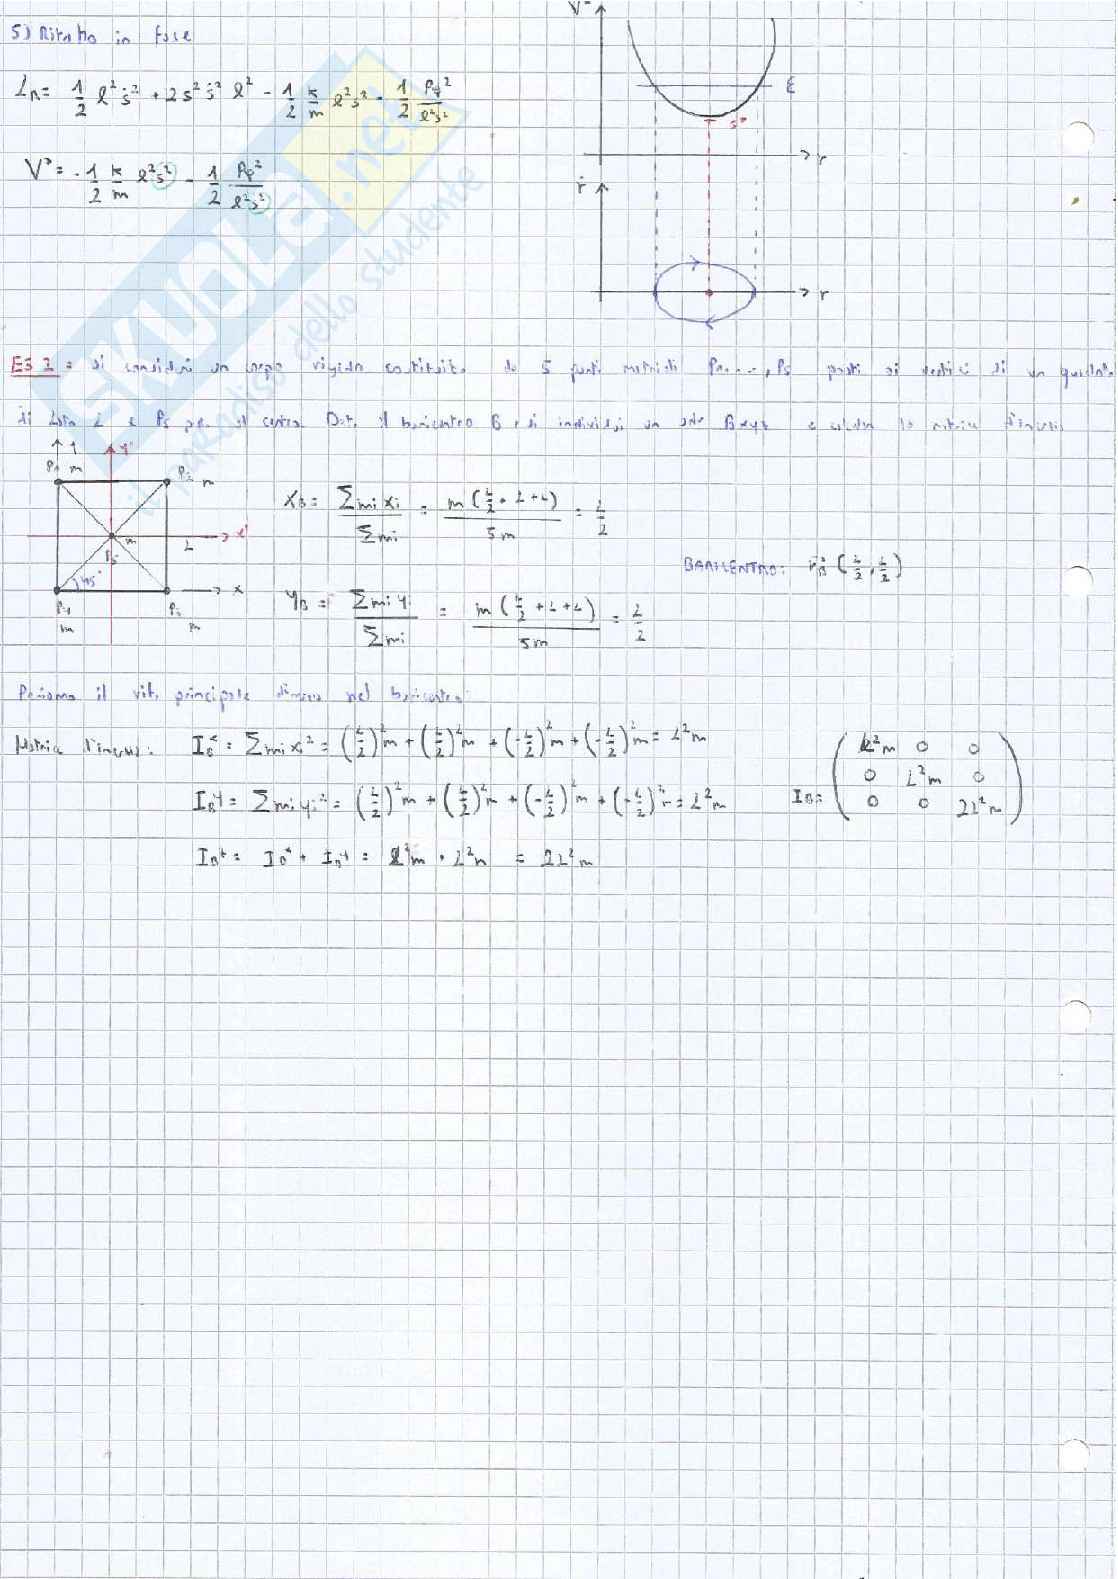 5) Ritratto in fase
L_R = 1/2 l² ṡ² + 2s² ṡ² l² - 1/2 k/m l² s² - 1/2 Pφ²/l²s²
V* = -1/2 k/m l² s² - 1/2 Pφ²/l²s²
V*
E
s*
r
ṙ
r
SKUOLA.net
il paradiso dello studente
ES 2: si consideri un corpo rigido costituito da 5 punti materiali P1, ..., P5 posti ai vertici di un quadrato
di lato L e P5 per il centro. Det. il baricentro B e si individui un e calcoli la matrice d'inerzia
y y'
P1 m P2 m
m L x'
P5
45° x
P4 m P3 m
X_B = Σmi xi / Σmi = m(L/2 + L + L) / 5m = L/2
BARICENTRO: r_B (L/2, L/2)
Y_B = Σmi yi / Σmi = m(L/2 + L + L) / 5m = L/2
Poniamo il rif. principale d'inerzia nel baricentro:
Matrice d'inerzia: I_B^x = Σ mi xi² = (L/2)² m + (L/2)² m + (-L/2)² m + (-L/2)² m = L² m
I_B^y = Σ mi yi² = (L/2)² m + (L/2)² m + (-L/2)² m + (-L/2)² m = L² m
I_B = ( L²m 0 0
0 L²m 0
0 0 2L²m )
I_B^z = I_B^x + I_B^y = L²m + L²m = 2L²m